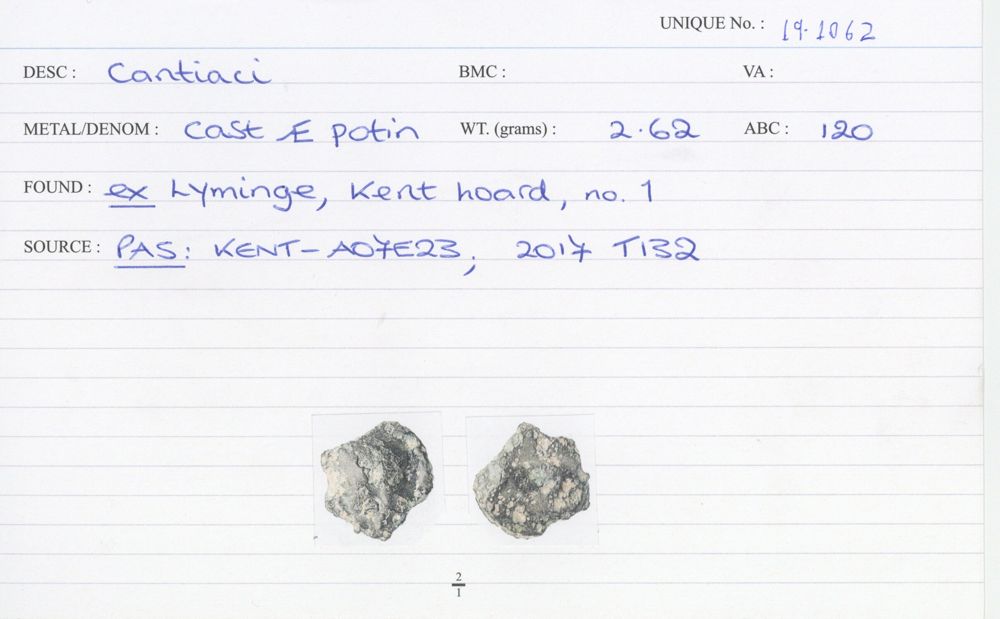 UNIQUE No. : 19.1062
DESC : Cantiaci BMC : VA :
METAL/DENOM : Cast Æ potin WT. (grams) : 2.62 ABC : 120
FOUND : ex Lyminge, Kent hoard, no. 1
SOURCE : PAS: KENT-A07E23, 2017 T132
2
1